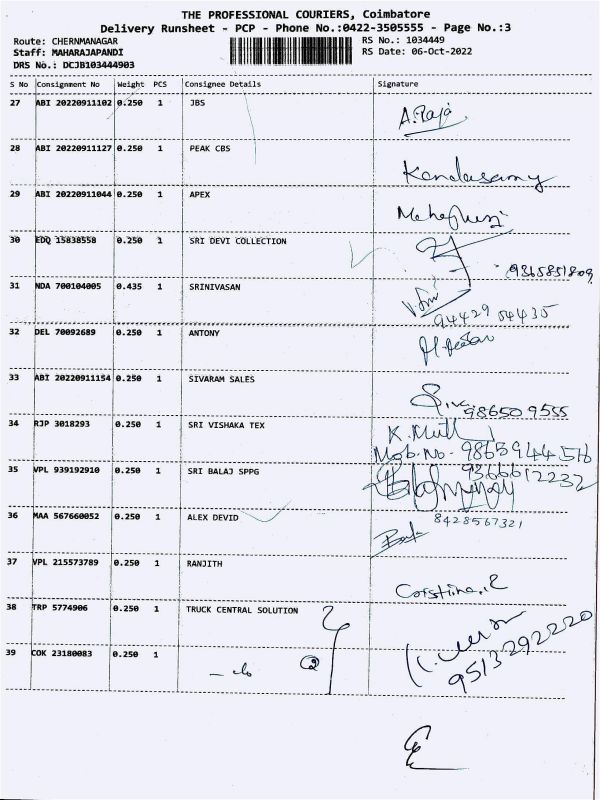 THE PROFESSIONAL COURIERS, Coimbatore
Delivery Runsheet - PCP - Phone No.:0422-3505555 - Page No.:3
Route: CHERNMANAGAR RS No.: 1034449
Staff: MAHARAJAPANDI RS Date: 06-Oct-2022
DRS No.: DCJB103444903
S No Consignment No Weight PCS Consignee Details Signature
27 ABI 20220911102 0.250 1 JBS A.Raja
28 ABI 20220911127 0.250 1 PEAK CBS Kandasamy
29 ABI 20220911044 0.250 1 APEX
30 EDQ 15838558 0.250 1 SRI DEVI COLLECTION 9365851809
31 NDA 700104005 0.435 1 SRINIVASAN
94429 04435
32 DEL 70092689 0.250 1 ANTONY
33 ABI 20220911154 0.250 1 SIVARAM SALES
986509555
34 RJP 3018293 0.250 1 SRI VISHAKA TEX K.
Mob.No. 9863944516
35 VPL 939192910 0.250 1 SRI BALAJ SPPG 9366612232
36 MAA 567660052 0.250 1 ALEX DEVID 8428567321
37 VPL 215573789 0.250 1 RANJITH
38 TRP 5774906 0.250 1 TRUCK CENTRAL SOLUTION
39 COK 23180083 0.250 1 9513292220